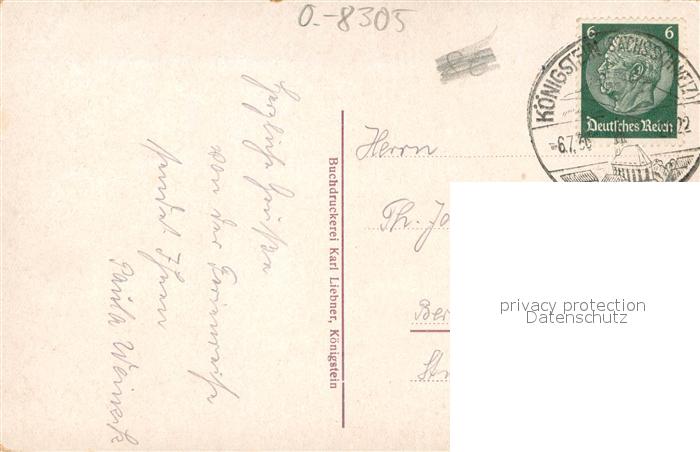 O.-8305
6 6
Deutsches Reich
KÖNIGSTEIN (SÄCHS. SCHWEIZ)
-6.7.36
22
Herzliche Grüße
von der Ferienreise
sendet Ihnen
Paula
Buchdruckerei Karl Liebner, Königstein
Herrn
Th. Jo
Ber
St
privacy protection
Datenschutz